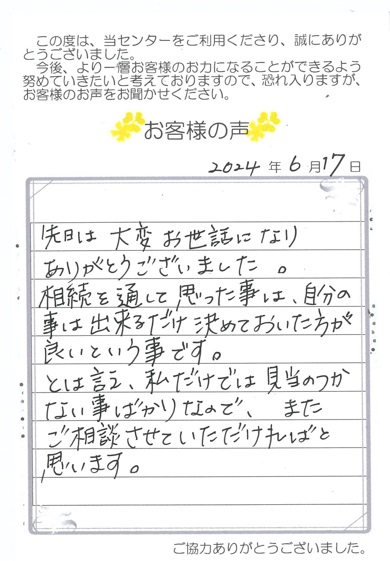 この度は、当センターをご利用くださり、誠にありが
とうございました。
今後、より一層お客様のお力になることができるよう
努めていきたいと考えておりますので、恐れ入りますが、
お客様のお声をお聞かせください。
お客様の声
2024 年 6 月 17 日
先日は 大変 お世話になり
ありがとうございました 。
相続を通して思った事は、自分の
事は出来るだけ決めておいた方が
良いという事です。
とは言え、私だけでは見当のつか
ない事ばかりなので、また
ご相談させていただければと
思います。
ご協力ありがとうございました。